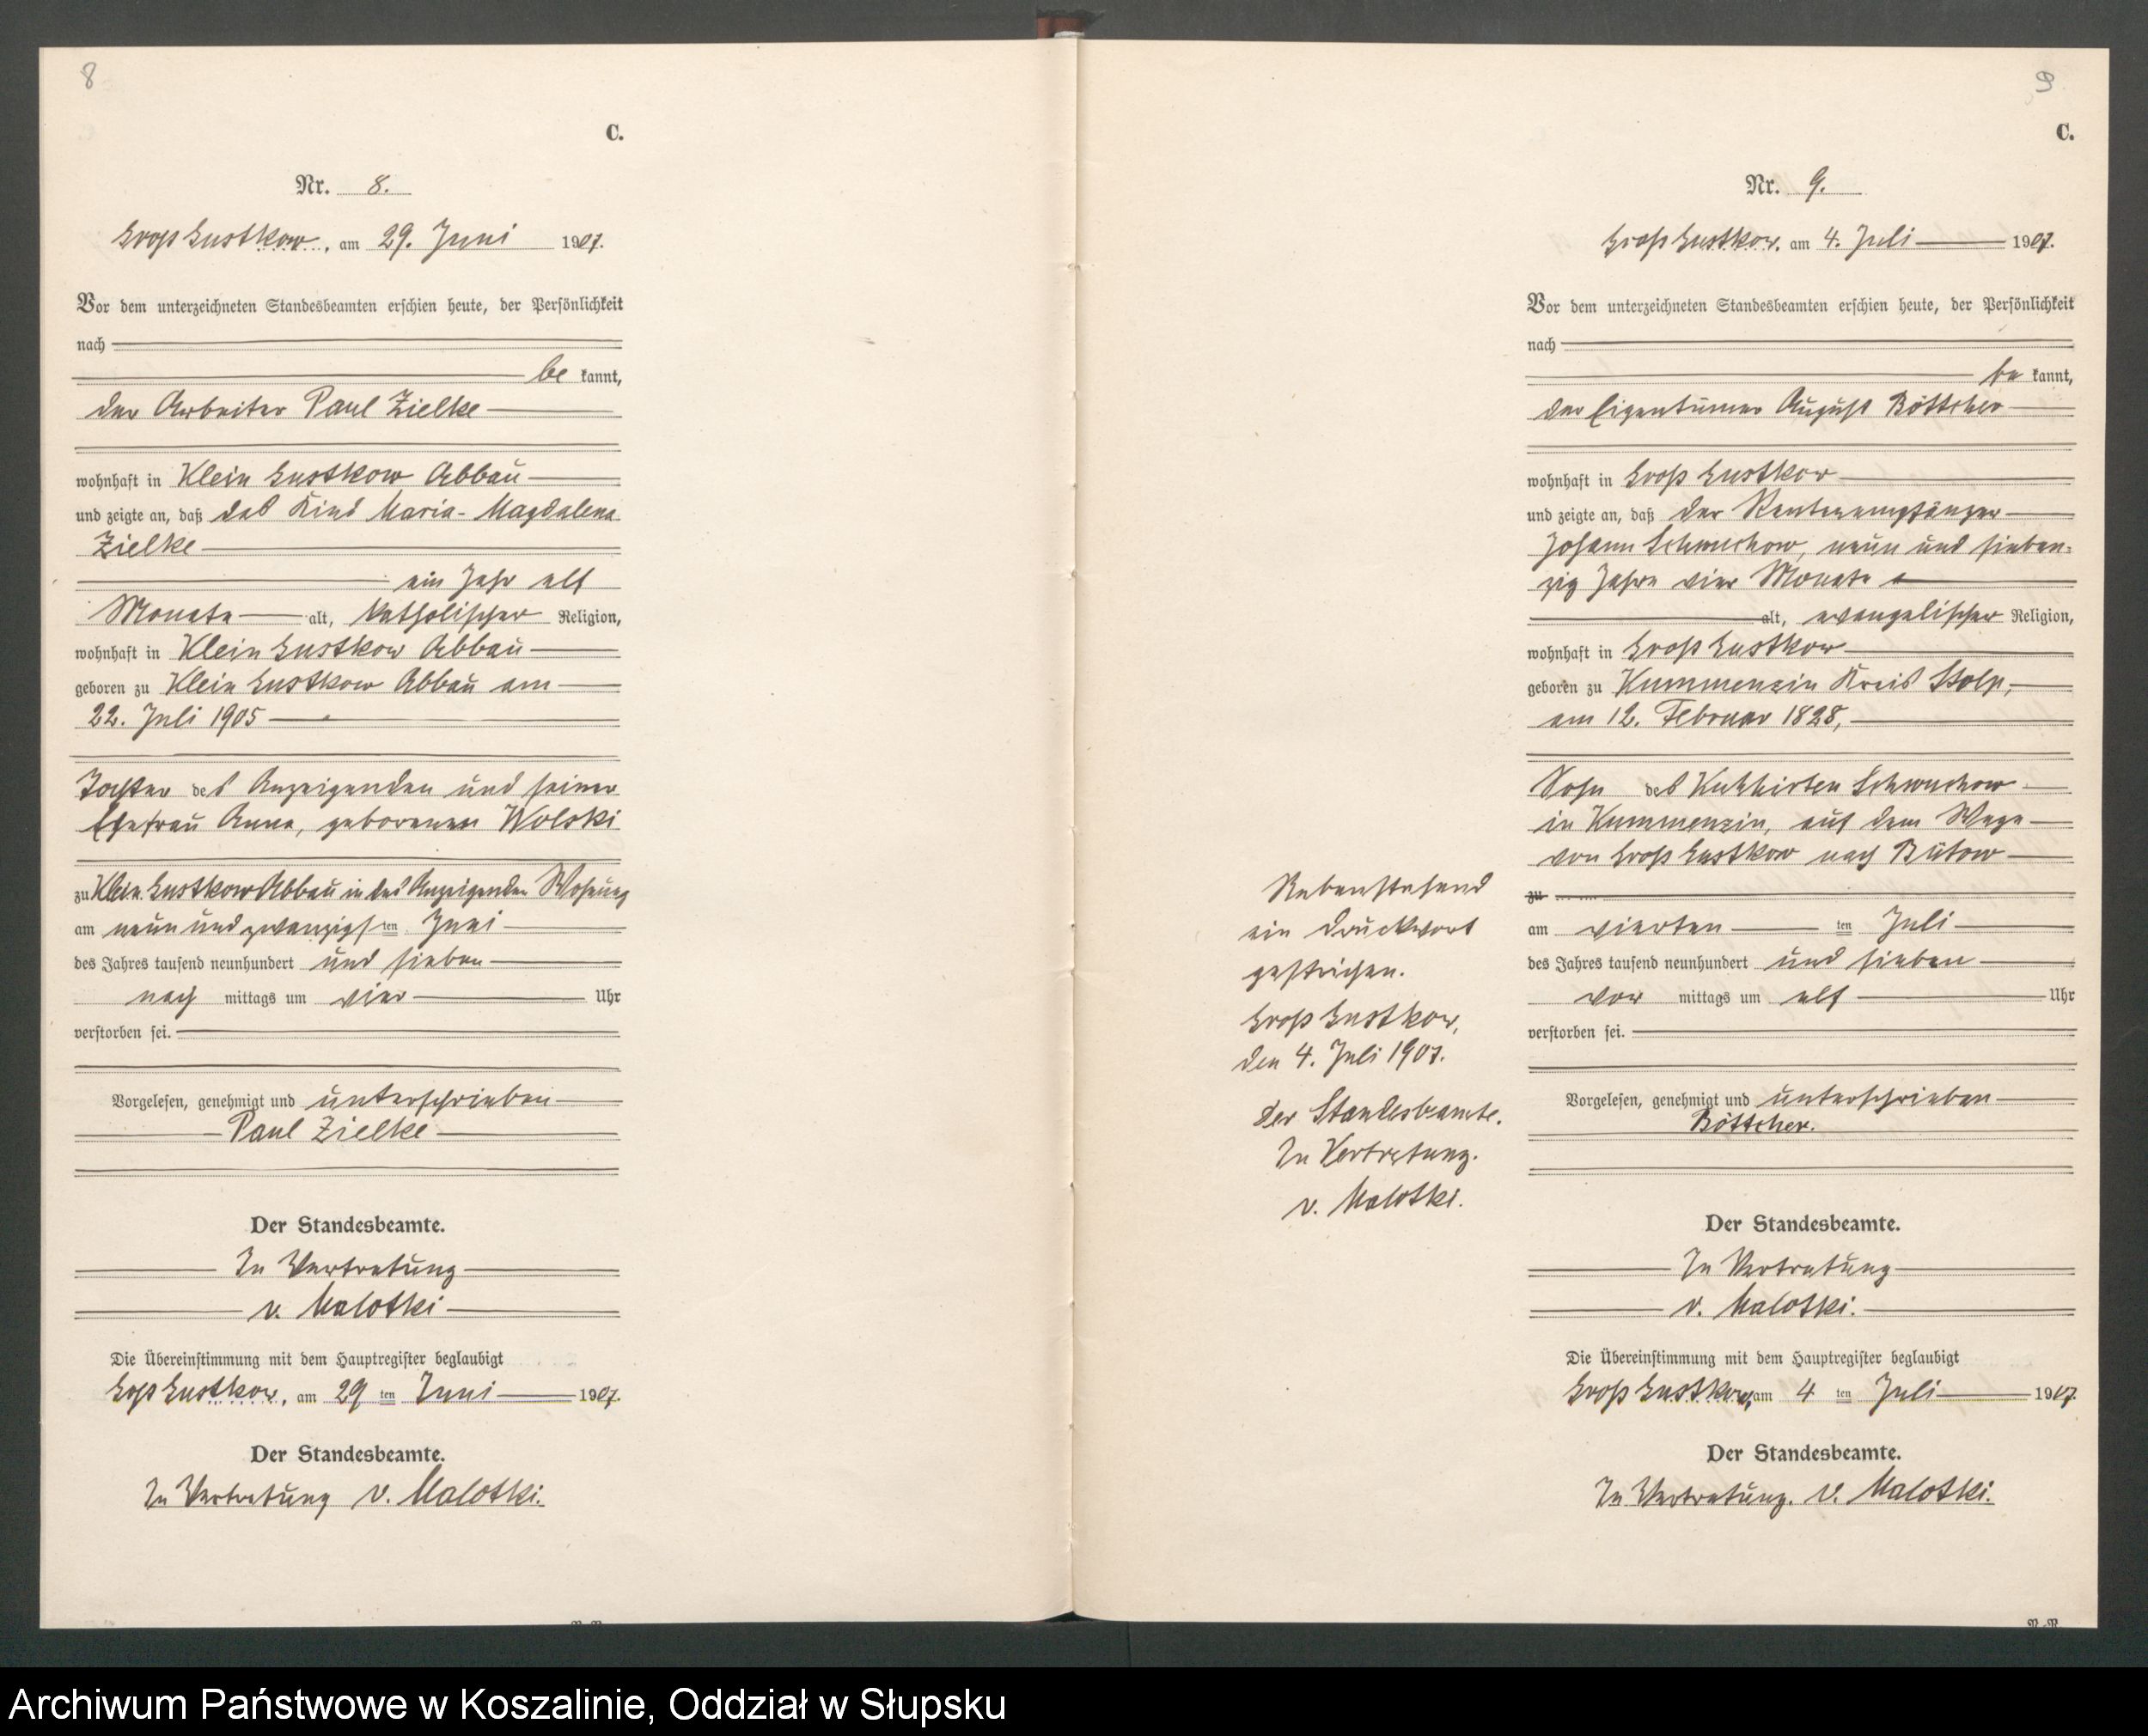 8
C.
Nr. 8.
Groß Gustkow, am 29. Juni 1907.
Vor dem unterzeichneten Standesbeamten erschien heute, der Persönlichkeit
nach
be kannt,
der Arbeiter Paul Zielke
wohnhaft in Klein Gustkow Abbau
und zeigte an, daß das Kind Maria-Magdalena
Zielke
ein Jahr elf
Monate alt, katholischer Religion,
wohnhaft in Klein Gustkow Abbau
geboren zu Klein Gustkow Abbau am
22. Juli 1905
Tochter des Anzeigenden und seiner
Ehefrau Anna, geborenen Wolski
zu Klein Gustkow Abbau in des Anzeigenden Wohnung
am neun und zwanzigsten Juni
des Jahres tausend neunhundert und sieben
nach mittags um vier Uhr
verstorben sei.
Vorgelesen, genehmigt und unterschrieben
Paul Zielke
Der Standesbeamte.
In Vertretung
v. Malotki
Die Übereinstimmung mit dem Hauptregister beglaubigt
Groß Gustkow, am 29 ten Juni 1907.
Der Standesbeamte.
In Vertretung v. Malotki.
9
C.
Nr. 9.
Groß Gustkow, am 4. Juli 1907.
Vor dem unterzeichneten Standesbeamten erschien heute, der Persönlichkeit
nach
be kannt,
der Eigentümer August Böttcher
wohnhaft in Groß Gustkow
und zeigte an, daß der Rentenempfänger
Johann Schwuchow, neun und sieben-
zig Jahre vier Monate
alt, evangelischer Religion,
wohnhaft in Groß Gustkow
geboren zu Kummenzin Kreis Stolp,
am 12. Februar 1828,
Sohn des Kuhhirten Schwuchow
in Kummenzin, auf dem Wege
von Groß Gustkow nach Bütow
zu
am vierten ten Juli
des Jahres tausend neunhundert und sieben
vor mittags um elf Uhr
verstorben sei.
Vorgelesen, genehmigt und unterschrieben
Böttcher.
Der Standesbeamte.
In Vertretung
v. Malotki.
Die Übereinstimmung mit dem Hauptregister beglaubigt
Groß Gustkow, am 4 ten Juli 1907.
Der Standesbeamte.
In Vertretung. v. Malotki.
Nebenstehend
ein Druckwort
gestrichen.
Groß Gustkow,
den 4. Juli 1907.
Der Standesbeamte.
In Vertretung.
v. Malotki.
Archiwum Państwowe w Koszalinie, Oddział w Słupsku